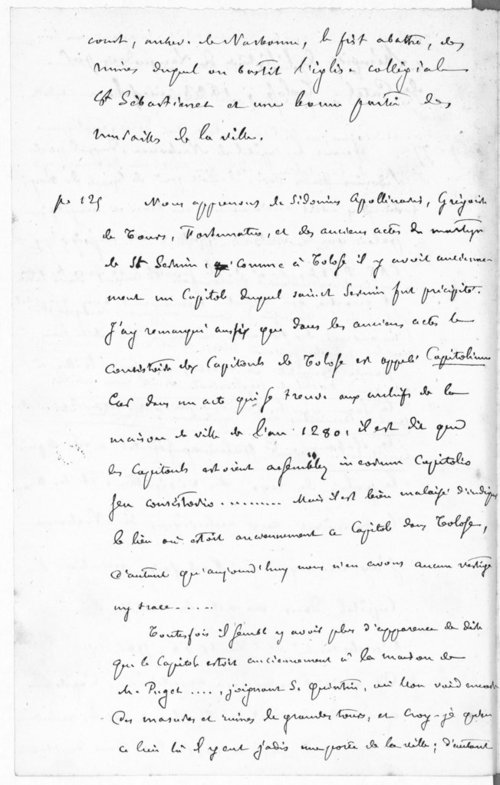 court, archev. de Narbonne, le fist abattre, des
ruines duquel on bastit l'église collégiale
St Sébastienet et une bonne partie des
murailles de la ville.
pe 125 Nous apprenons de Sidonius Apollinaris, Grégoire
de Tours, Fortunatus, et des anciens actes du martyre
de St Sernin, comme à Tolose il y avoit ancienne-
ment un Capitole duquel sainct Sernin fut précipité.
J'ay remarqué aussy que dans les anciens actes le
Consistoire des Capitouls de Tolose est appelé Capitolium
Car dans un acte qui se trouve aux archifs de la
maison de ville de l'an 1280, il est dit que
les Capitouls estoient assemblez in eorum Capitolio
seu consistorio .......... Mais il est bien malaisé d'indiquer
le lieu où estoit anciennement ce Capitole dans Tolose,
d'autant qu'aujourd'huy nous n'en avons aucun vestige
ny trace......
Toutesfois il semble y avoir plus d'apparence de dire
que le Capitole estoit anciennement à la maison de
M. Puget ...., joignant St Quentin, où l'on void encore
des masures et ruines de grandes tours, et croy-je qu'en
ce lieu là il y eut jadis une porte de la ville ; d'autant